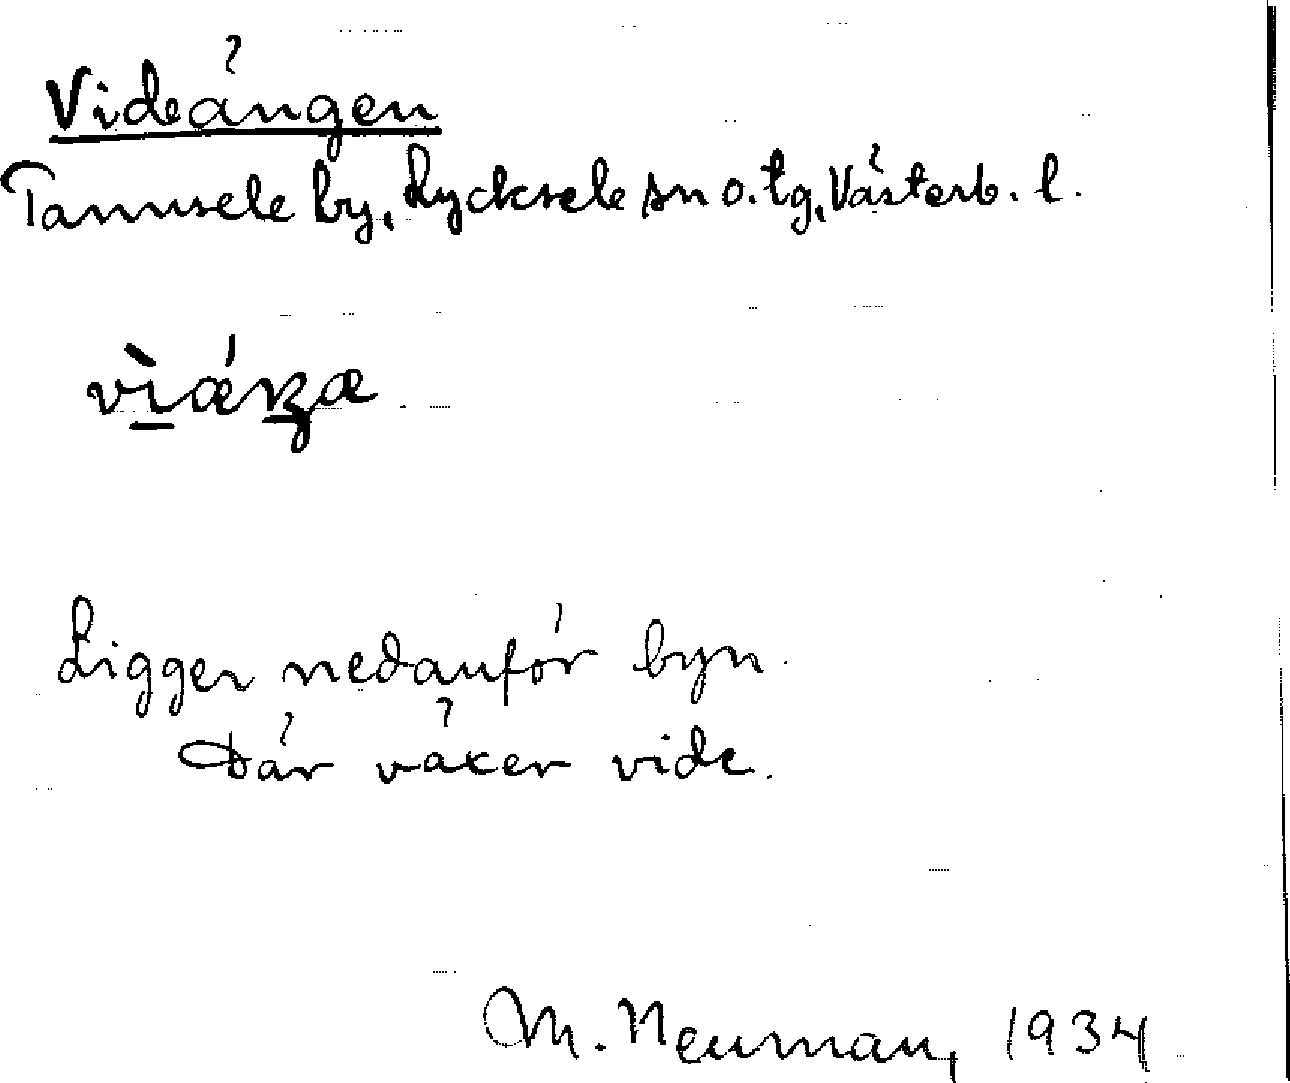 Videängen
Tannsele by, Lycksele sn o. tg, Västerb. l.
Ligger nedanför byn.
Där växer vide.
M. Neuman, 1934